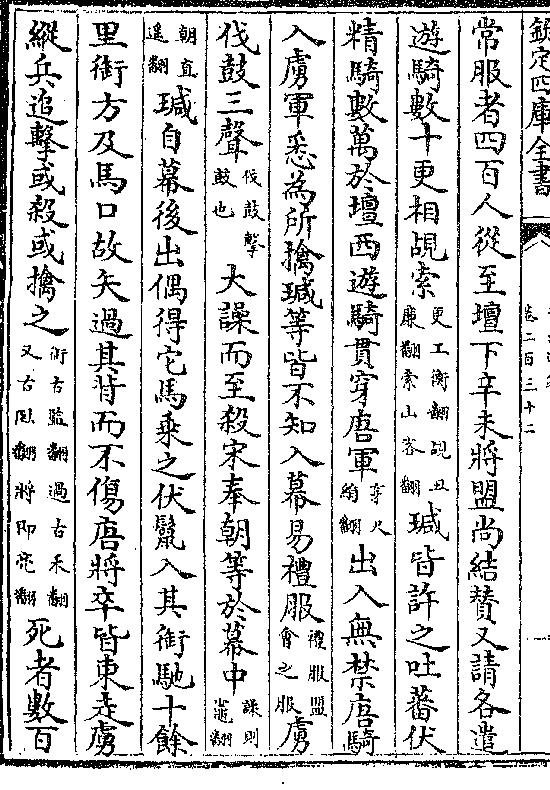 欽定四庫全書
卷二百三十二
常服者四百人從至壇下辛未將盟尚結贊又請各遣
遊騎數十更相覘索更工衡翻覘丑廉翻索山客翻瑊皆許之吐蕃伏
精騎數萬於壇西遊騎貫穿唐軍穿尺絹翻出入無禁唐騎
入虜軍悉為所擒瑊等皆不知入幕易禮服禮服盟會之服虜
伐鼓三聲伐鼓擊鼓也大譟而至殺宋奉朝等於幕中譟則竈翻
朝直遙翻瑊自幕後出偶得它馬乘之伏鬛入其銜馳十餘
里銜方及馬口故矢過其背而不傷唐將卒皆東走虜
縱兵追擊或殺或擒之銜古監翻過古禾翻又古卧翻將即亮翻死者數百